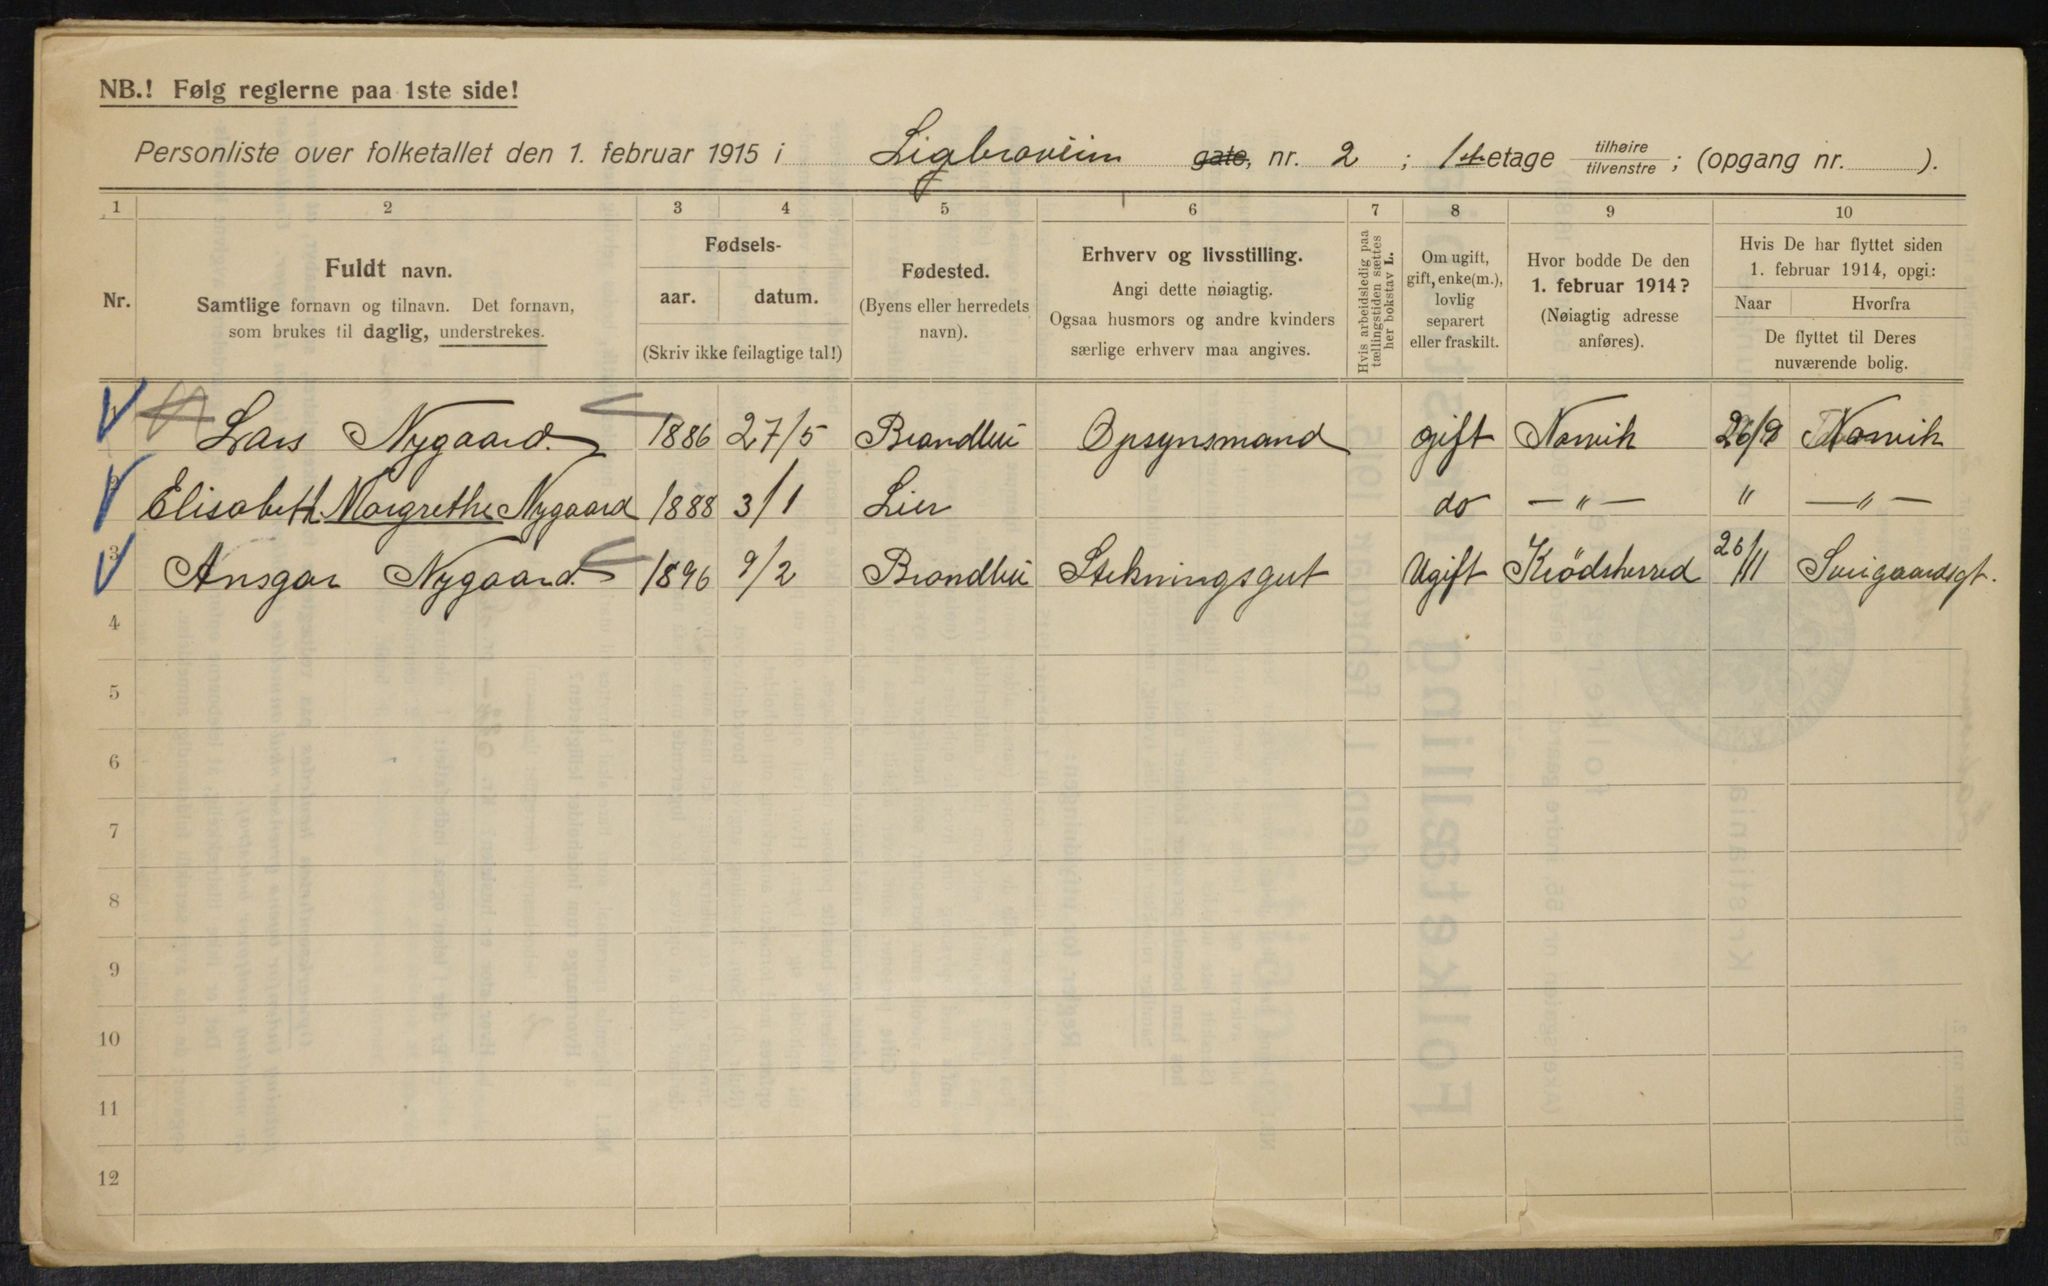 NB.! Følg reglerne paa 1ste side!
Personliste over folketallet den 1. februar 1915 i Ligbroveien gate, nr. 2 ; 1ste etage tilhøire / tilvenstre ; (opgang nr. ).
1 2 3 4 5 6 7 8 9 10
Nr.
Fuldt navn.
Samtlige fornavn og tilnavn. Det fornavn,
som brukes til daglig, understrekes.
Fødsels-
aar. datum.
(Skriv ikke feilagtige tal!)
Fødested.
(Byens eller herredets
navn).
Erhverv og livsstilling.
Angi dette nøiagtig.
Ogsaa husmors og andre kvinders
særlige erhverv maa angives.
Hvis arbeidsledig paa
tællingstiden sættes
her bokstav L.
Om ugift,
gift, enke(m.),
lovlig
separert
eller fraskilt.
Hvor bodde De den
1. februar 1914?
(Nøiagtig adresse
anføres).
Hvis De har flyttet siden
1. februar 1914, opgi:
Naar Hvorfra
De flyttet til Deres
nuværende bolig.
1 Lars Nygaard 1886 27/5 Brandbu Opsynsmand gift Narvik 26/9 Narvik
2 Elisabeth Margrethe Nygaard 1888 3/1 Lier do — „ — „ — „ —
3 Ansgar Nygaard 1896 9/2 Brandbu Stikningsgut Ugift Krødsherred 26/11 Sveigaardsgt.
4
5
6
7
8
9
10
11
12